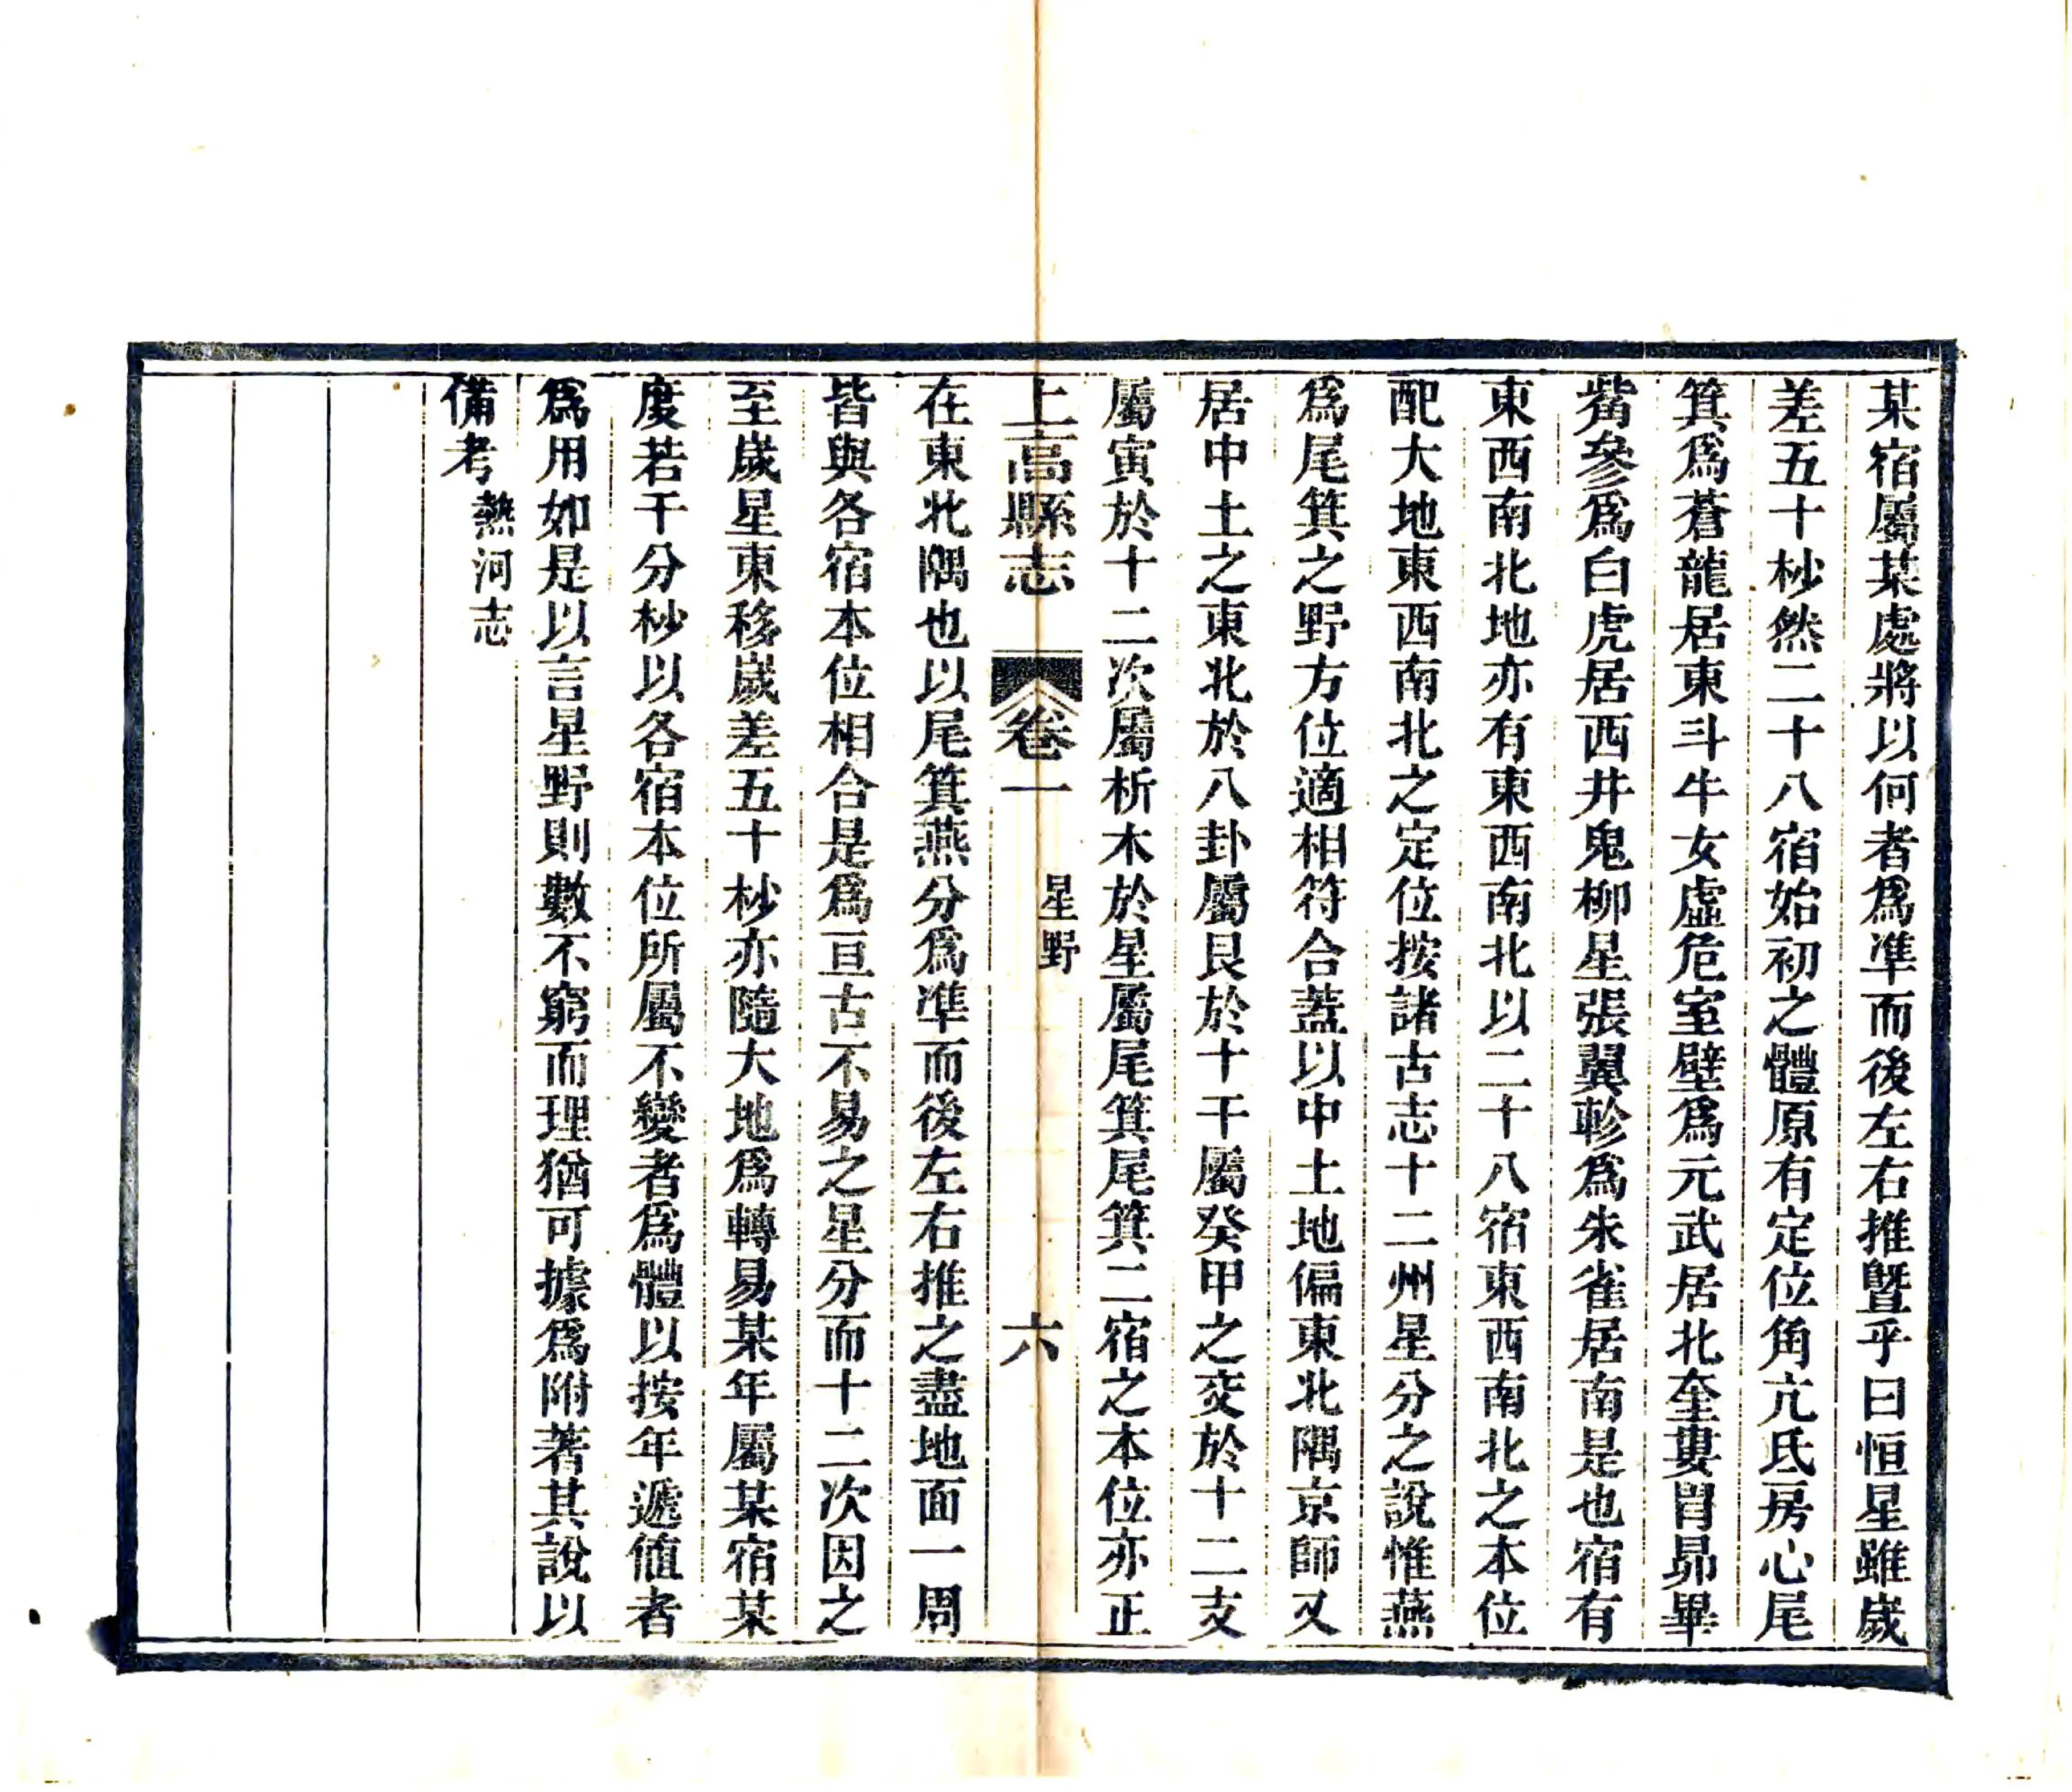 某宿屬某處將以何者爲準而後左右推曁乎曰恒星雖歲
差五十杪然二十八宿始初之體原有定位角亢氐房心尾
箕爲蒼龍居東斗牛女虛危室壁爲元武居北奎婁胃昴畢
觜參爲白虎居西井鬼柳星張翼軫爲朱雀居南是也宿有
東西南北地亦有東西南北以二十八宿東西南北之本位
配大地東西南北之定位按諸古志十二州星分之說惟燕
爲尾箕之野方位適相符合蓋以中土地偏東北隅京師又
居中土之東北於八卦屬艮於十干屬癸甲之交於十二支
屬寅於十二次屬析木於星屬尾箕尾箕二宿之本位亦正
上高縣志 卷一 星野 六
在東北隅也以尾箕燕分爲準而後左右推之盡地面一周
皆與各宿本位相合是爲亘古不易之星分而十二次因之
至歲星東移歲差五十杪亦隨大地爲轉易某年屬某宿某
度若干分杪以各宿本位所屬不變者爲體以按年遞值者
爲用如是以言星野則數不窮而理猶可據爲附著其說以
備考 熱河志